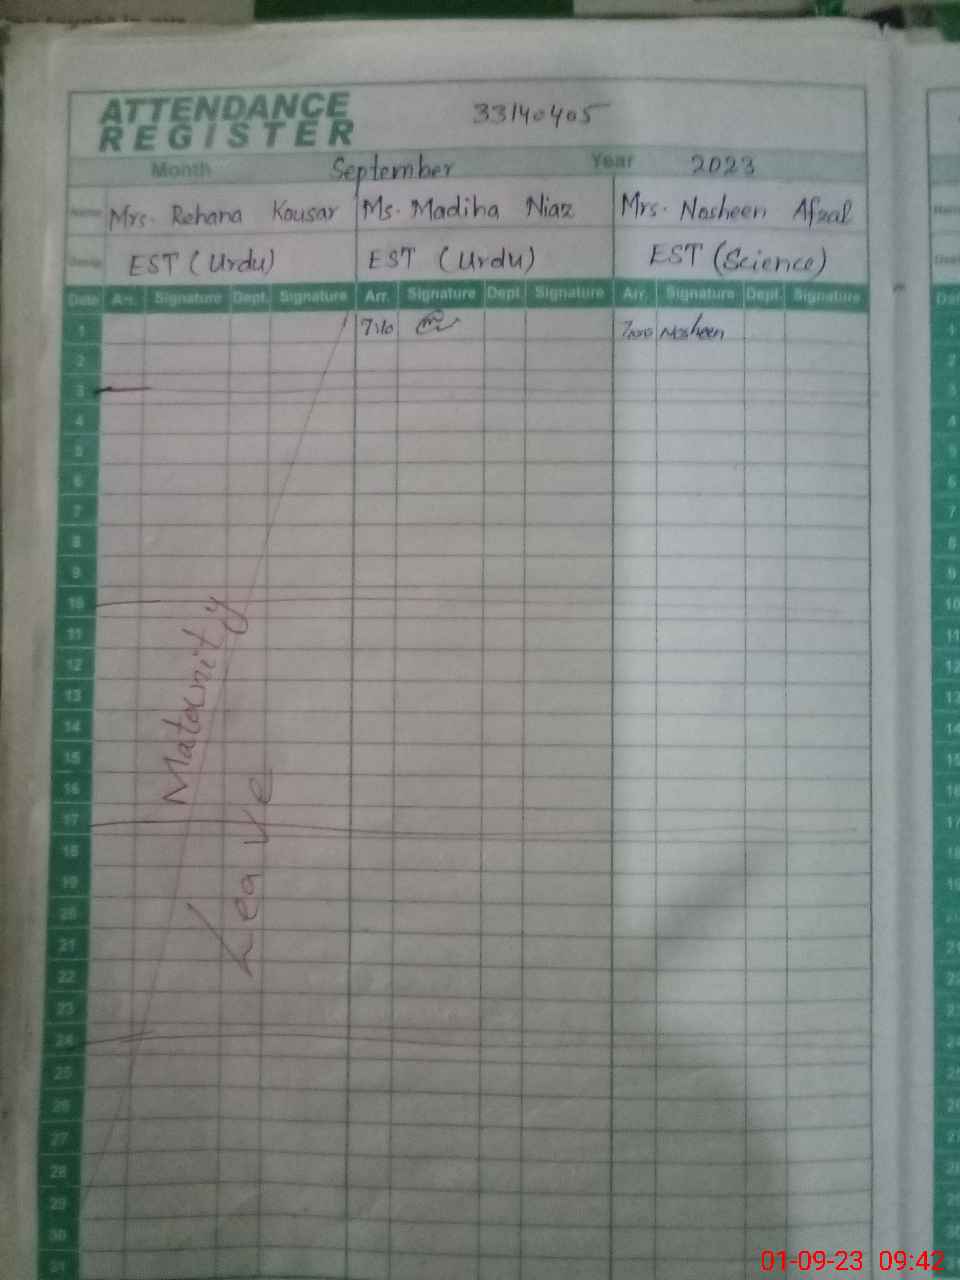 ATTENDANCE
REGISTER
33140405
Month September Year 2023
Name Mrs. Rehana Kousar Ms. Madiha Niaz Mrs. Nosheen Afzal
Desig EST (Urdu) EST (Urdu) EST (Science)
Date Arr. Signature Dept. Signature Arr. Signature Dept. Signature Arr. Signature Dept. Signature
1 7:10 Nosheen
2
3
4
5
6
7
8
9
10
11
12
13
14
15
16
17
18
19
20
21
22
23
24
25
26
27
28
29
30
31
Matounity
Leave
01-09-23 09:42